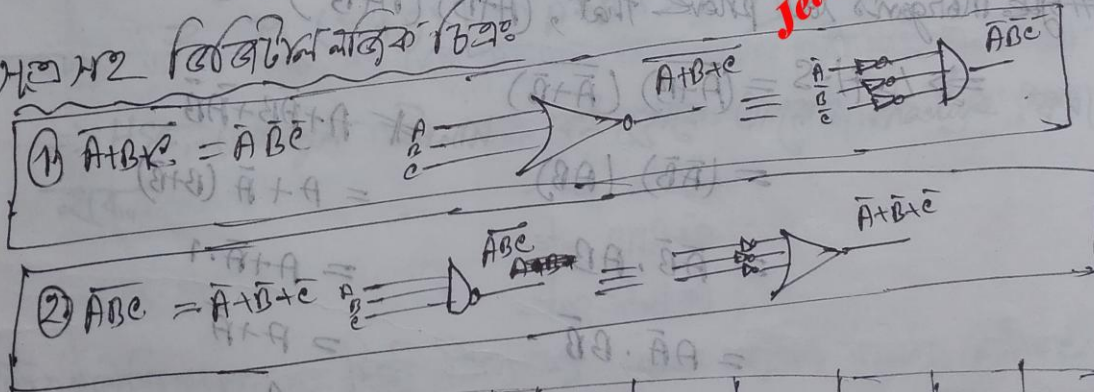 সূত্র সহ ডিজিটাল লজিক চিত্রঃ
① \overline{A+B+C} = \bar{A} \bar{B} \bar{C} A B C \overline{A+B+C} ≡ \bar{A} \bar{B} \bar{C} \bar{A}\bar{B}\bar{C}
② \overline{ABC} = \bar{A}+\bar{B}+\bar{C} A B C \overline{ABC} ≡ \bar{A}+\bar{B}+\bar{C}